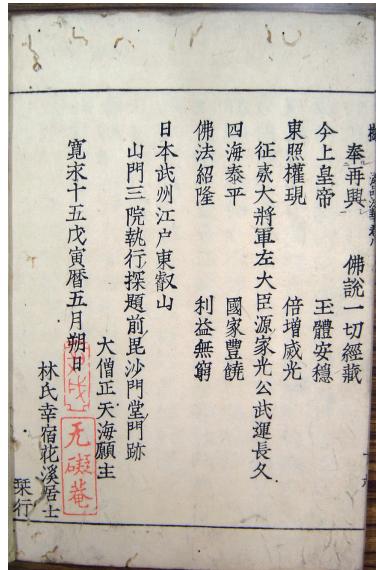 奉再興 佛說一切經藏
今上皇帝 玉體安穩
東照權現 倍增威光
征夷大將軍左大臣源家光公武運長久
四海泰平 國家豐饒
佛法紹隆 利益無窮
日本武州江户東叡山
山門三院執行探題前毘沙門堂門跡
大僧正天海願主
寬永十五戊寅曆五月朔日
林氏幸宿花溪居士
栞行
无礙菴